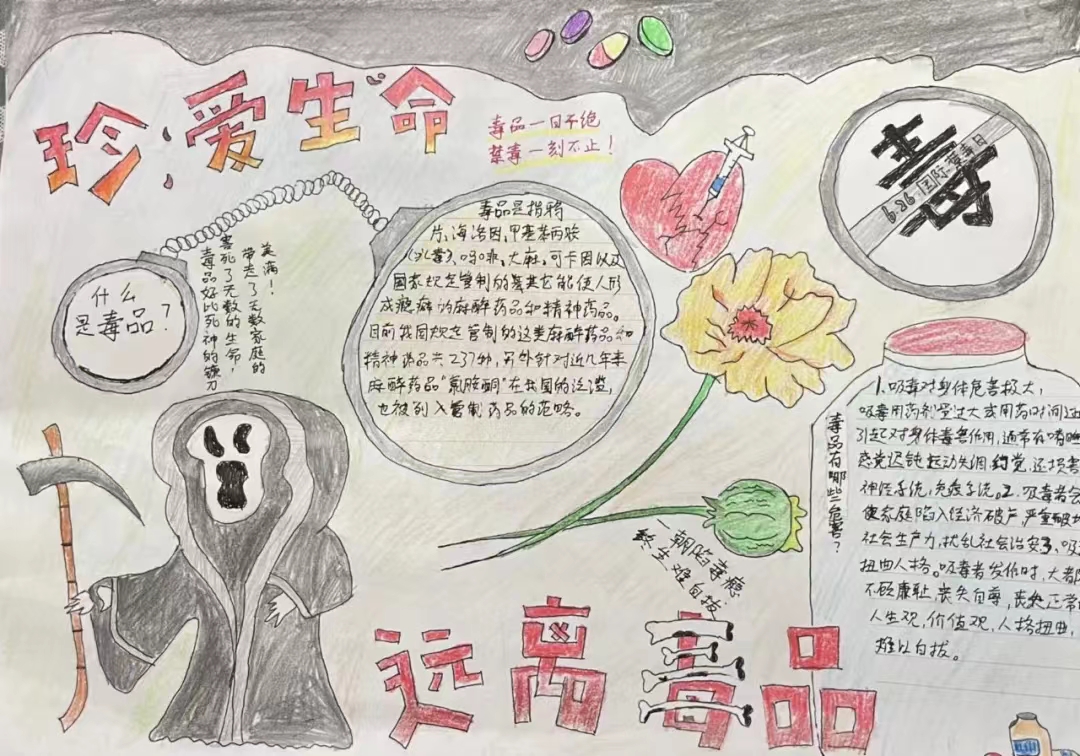 珍爱生命
毒品一日不绝
禁毒一刻不止！
什么
是毒品？
毒品好比死神的镰刀
害死了无数的生命，
带走了无数家庭的
美满！
毒品是指鸦
片、海洛因、甲基苯丙胺
（冰毒）、吗啡、大麻、可卡因以及
国家规定管制的其它能使人形
成瘾癖的麻醉药品和精神药品。
目前我国规定管制的这类麻醉药品和
精神药品共237种，另外针对近几年来
麻醉药品“氯胺酮”在我国的泛滥，
也被列入管制药品的范畴。
毒
6.26国际禁毒日
毒品有哪些危害？
1.吸毒对身体危害极大，
吸毒用药剂量过大或用药时间过
引起对身体毒害作用，通常有嗜睡
感觉迟钝运动失调 幻觉，还损害
神经系统，免疫系统。2.吸毒者会
使家庭陷入经济破产，严重破坏
社会生产力，扰乱社会治安3、吸
扭曲人格。吸毒者发作时，大都
不顾廉耻，丧失自尊，丧失正常
人生观，价值观，人格扭曲，
难以自拔。
一朝陷毒瘾
终生难自拔
远离毒品